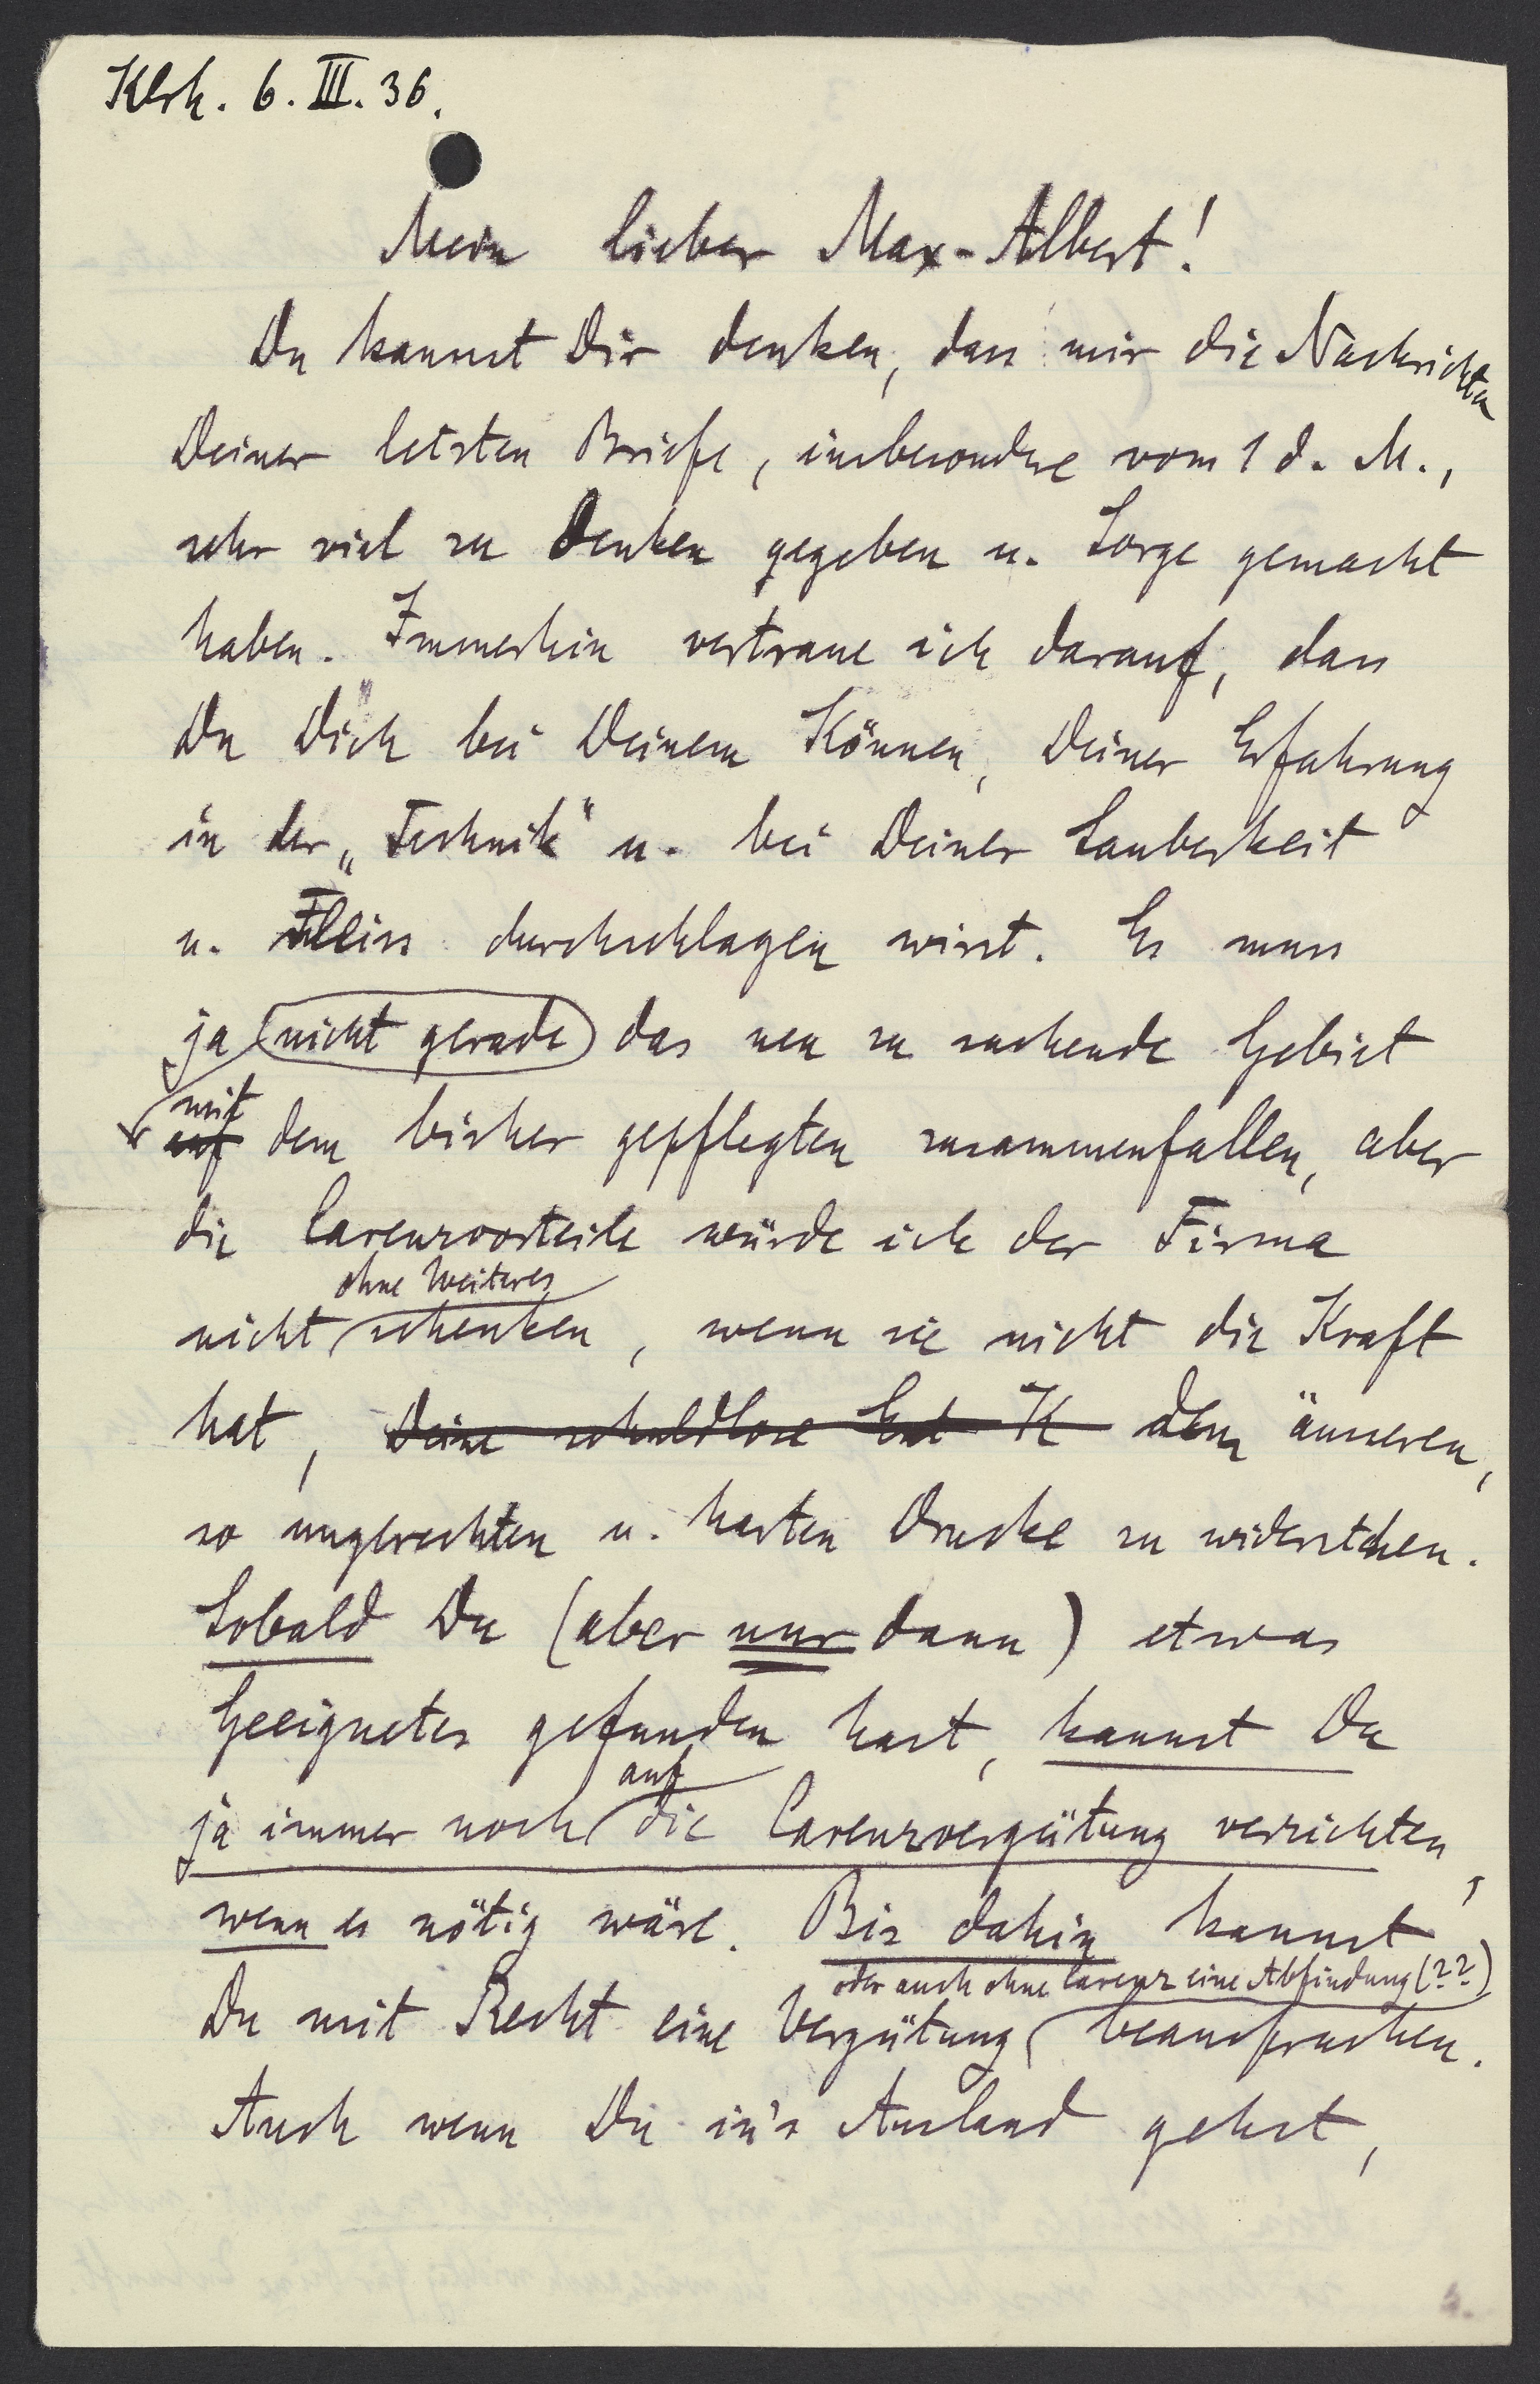 Klrh. 6. III. 36.
Mein lieber Max-Albert!
Du kannst Dir denken, dass mir die Nachrichten
Deiner letzten Briefe, insbesondere vom 1 d. M.,
sehr viel zu Denken gegeben u. Sorge gemacht
haben. Immerhin vertraue ich darauf, dass
Du Dich bei Deinem Können, Deiner Erfahrung
in der „Technik" u. bei Deiner Sauberkeit
u. Fleiss durchschlagen wirst. Es muss
ja nicht gerade das neu zu suchende Gebiet
mit
auf dem bisher gepflegten zusammenfallen, aber
die Carenzvorteile würde ich der Firma
ohne Weiteres
nicht schenken, wenn sie nicht die Kraft
hat, Deine schuldlose Ent K dem äusseren,
so ungerechten u. harten Drucke zu widerstehen.
Sobald Du (aber nur dann) etwas
Geeignetes gefunden hast, kannst Du
auf
ja immer noch die Carenzvergütung verzichten,
wenn es nötig wäre. Bis dahin kannst
oder auch ohne Carenz eine Abfindung (??)
Du mit Recht eine Vergütung beanspruchen.
Auch wenn Du in's Ausland gehst,